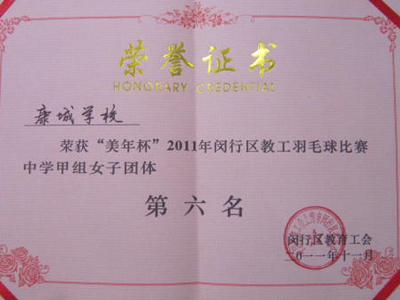 荣誉证书
HONORARY CREDENTIAL
康城学校
荣获“美年杯”2011年闵行区教工羽毛球比赛
中学甲组女子团体
第六名
闵行区教育工会
二〇一一年十一月